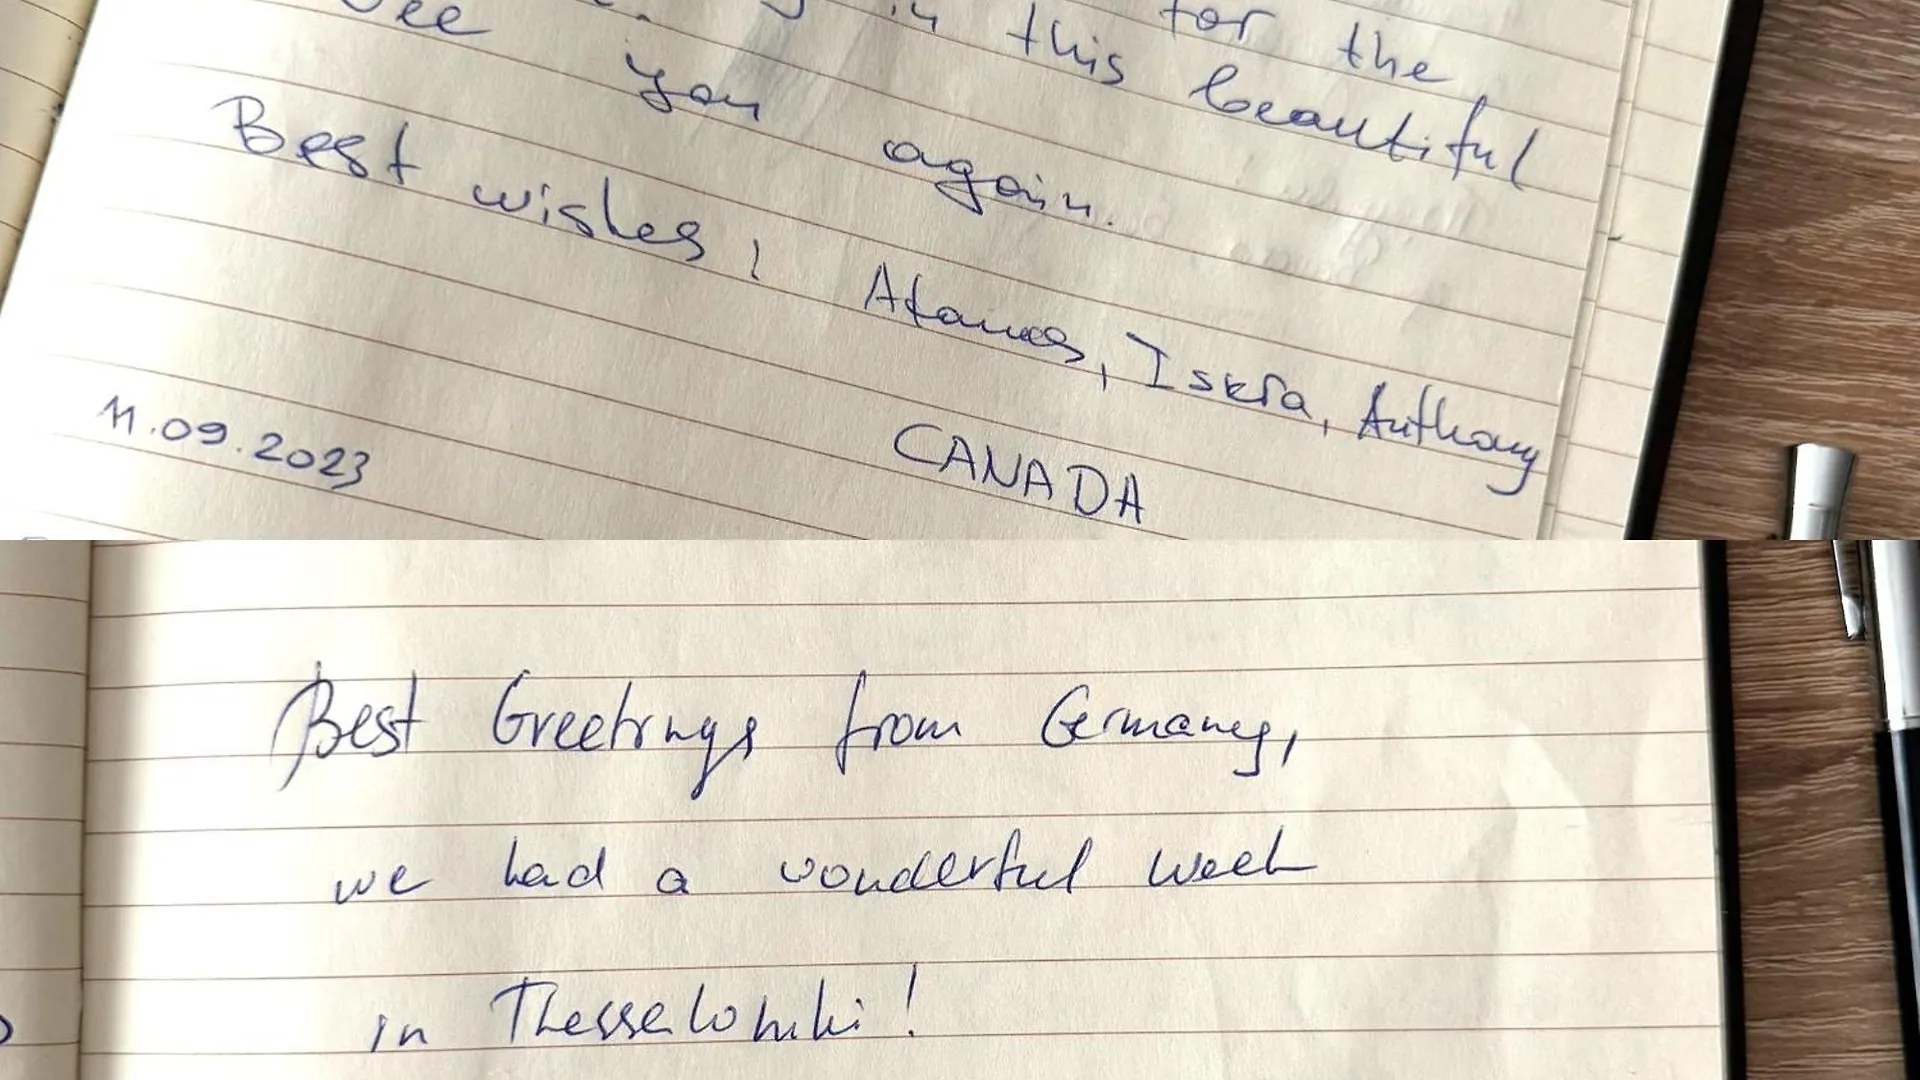 for the
in this beautiful
See you again.
Best wishes, Atanas, Iskra, Anthony
CANADA
11.09.2023
Best Greetings from Germany,
we had a wonderful week
in Thessaloniki!